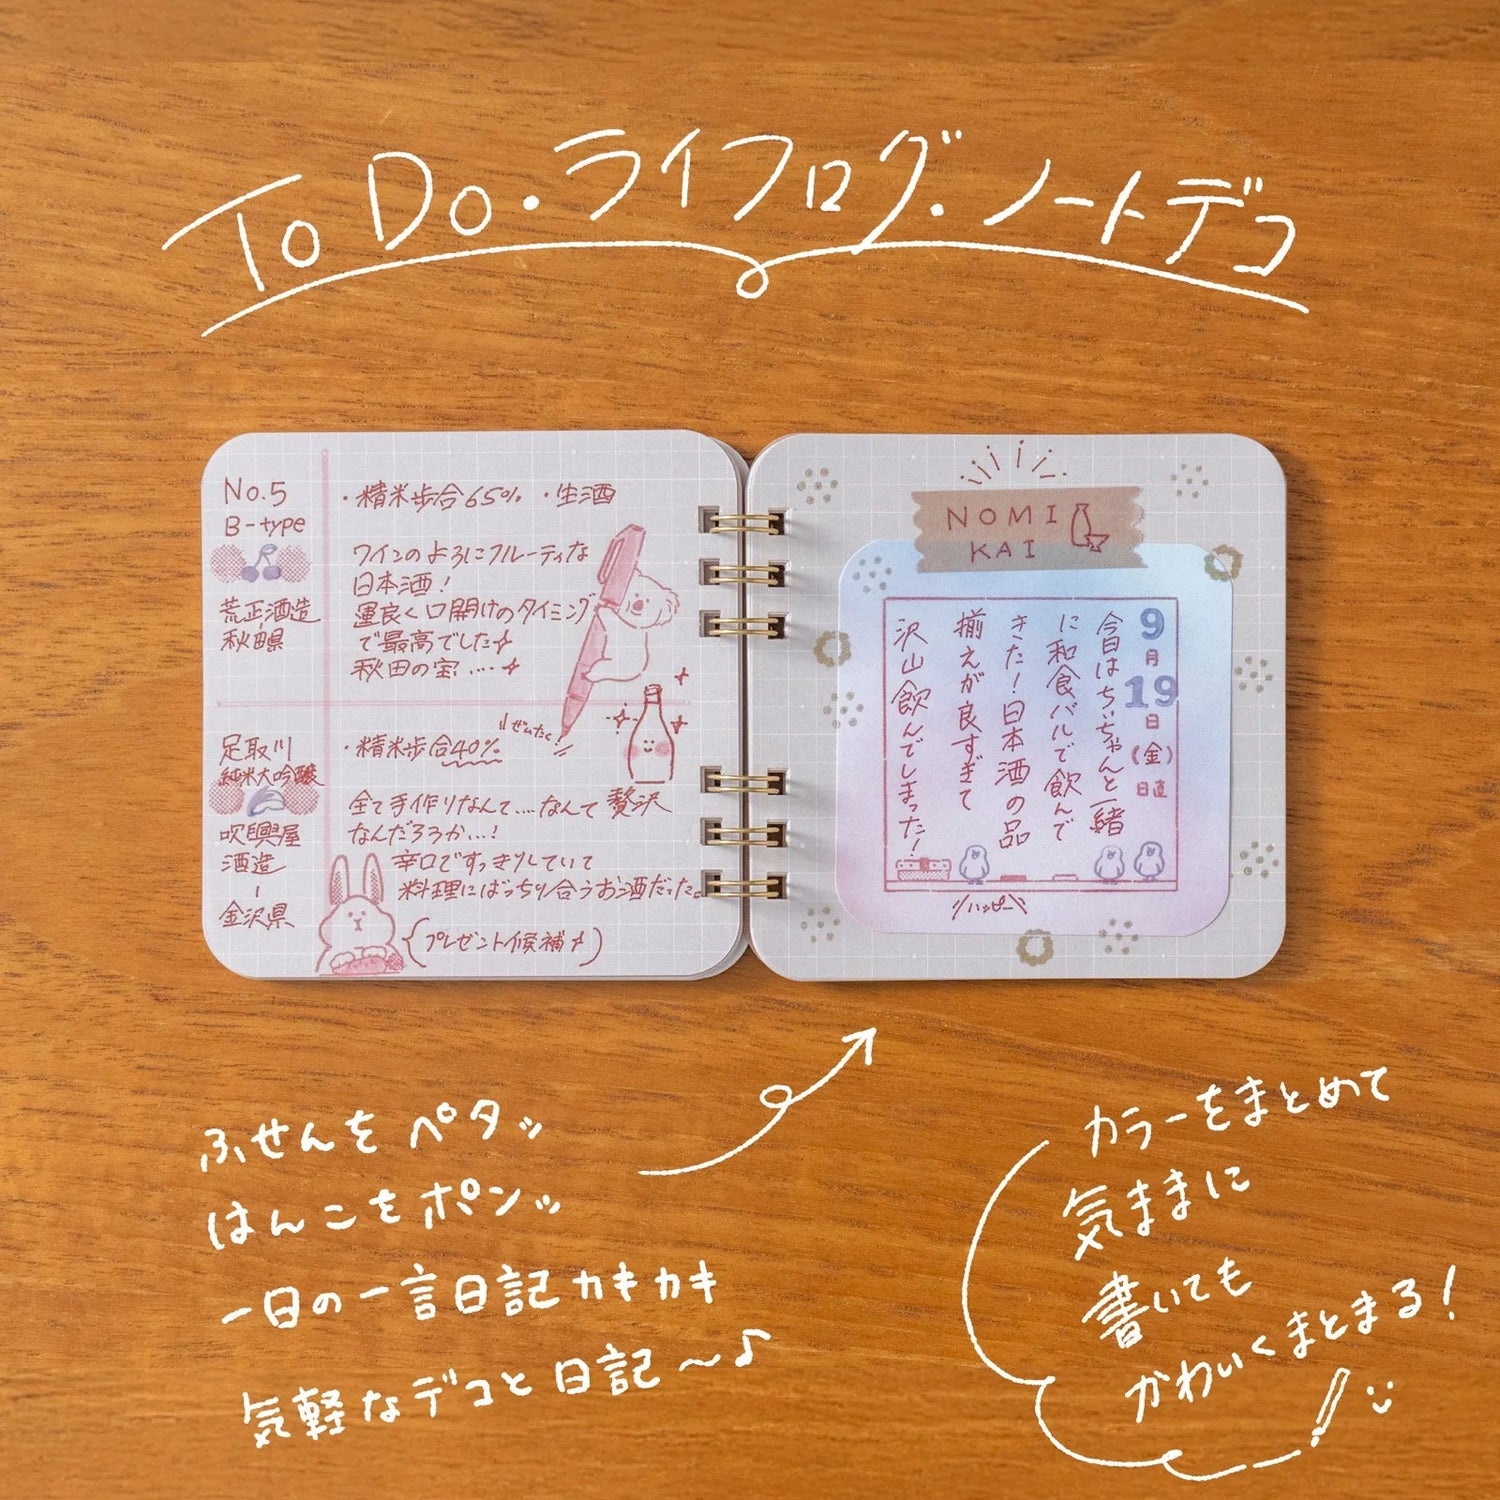 ToDo・ライフログ・ノートデコ
No.5
B-type
荒正酒造
秋田県
・精米歩合65% ・生酒
ワインのようにフルーティな
日本酒!
運良く口開けのタイミング
で最高でした
秋田の宝…
足取川
純米大吟醸
吹興屋
酒造
金沢県
・精米歩合40%
ぜいたく
全て手作りなんて…なんて贅沢
なんだろうか…!
辛口ですっきりしていて
料理にばっちり合うお酒だった。
(プレゼント候補)
NOMI
KAI
9月19日(金)
日直
今日はちぃちゃんと一緒
に和食バルで飲んで
きた!日本酒の品
揃えが良すぎて
沢山飲んでしまった!
ハッピー
ふせんをペタッ
はんこをポンッ
一日の一言日記カキカキ
気軽なデコと日記〜♪
カラーをまとめて
気ままに
書いても
かわいくまとまる!